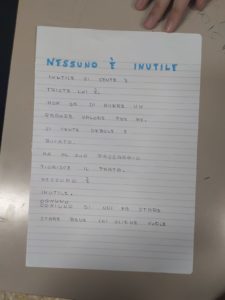 NESSUNO È INUTILE
INUTILE SI SENTE E
TRISTE LUI È.
NON SA DI AVERE UN
GRANDE VALORE PER ME.
SI SENTE DEBOLE E
VUOTO.
MA AL SUO PASSAGGIO
FIORISCE IL PRATO.
NESSUNO È
INUTILE.
OGNUNO
OGNUNO DI NOI FA STARE
STARE BENE CHI VUOLE